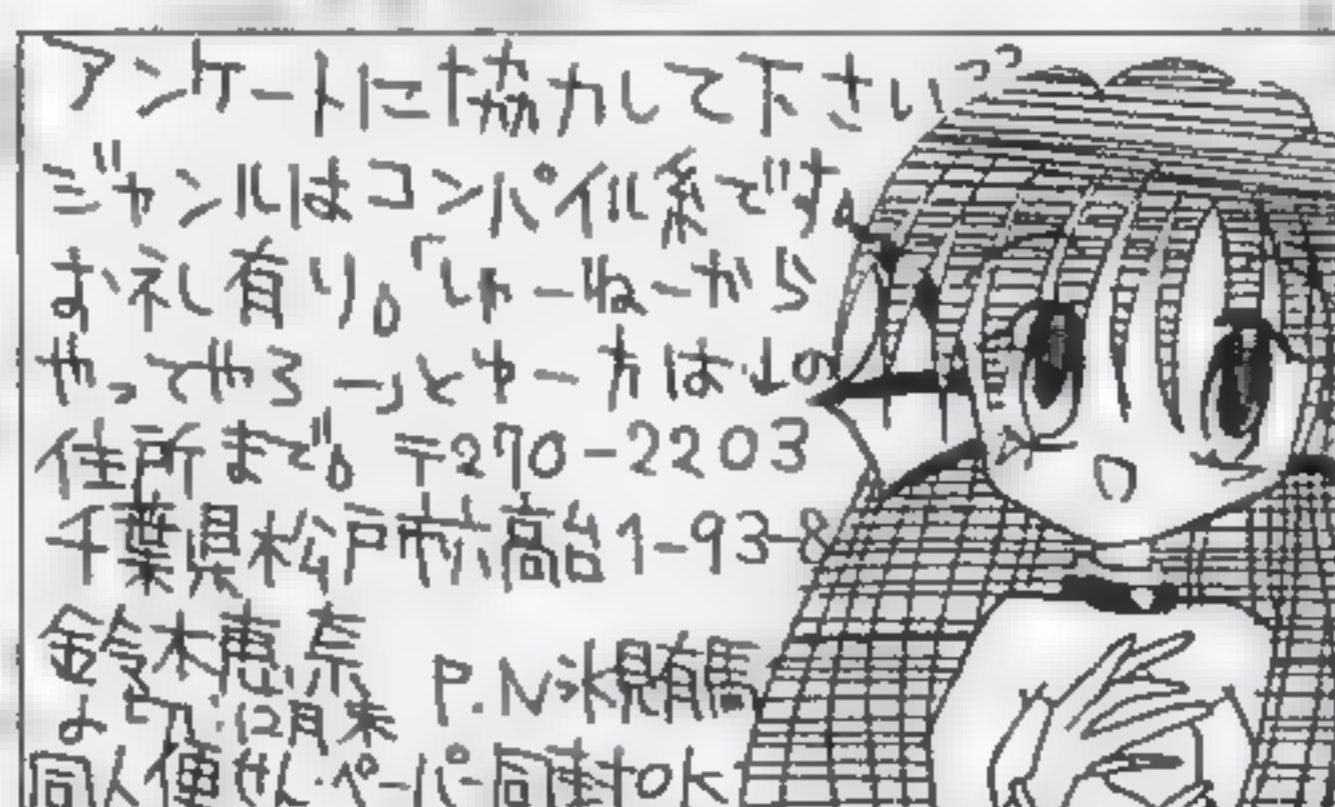 アンケートに協力して下さいっっ
ジャンルはコンパイル系です。
お礼有り。「しゅーねーから
やってやろー」とゆー方は↓の
住所まで。〒270-2203
千葉県松戸市六高台1-93-8
鈴木恵奈 P.N氷見有馬
〆切:12月末
同人便せん・ペーパー同封OK